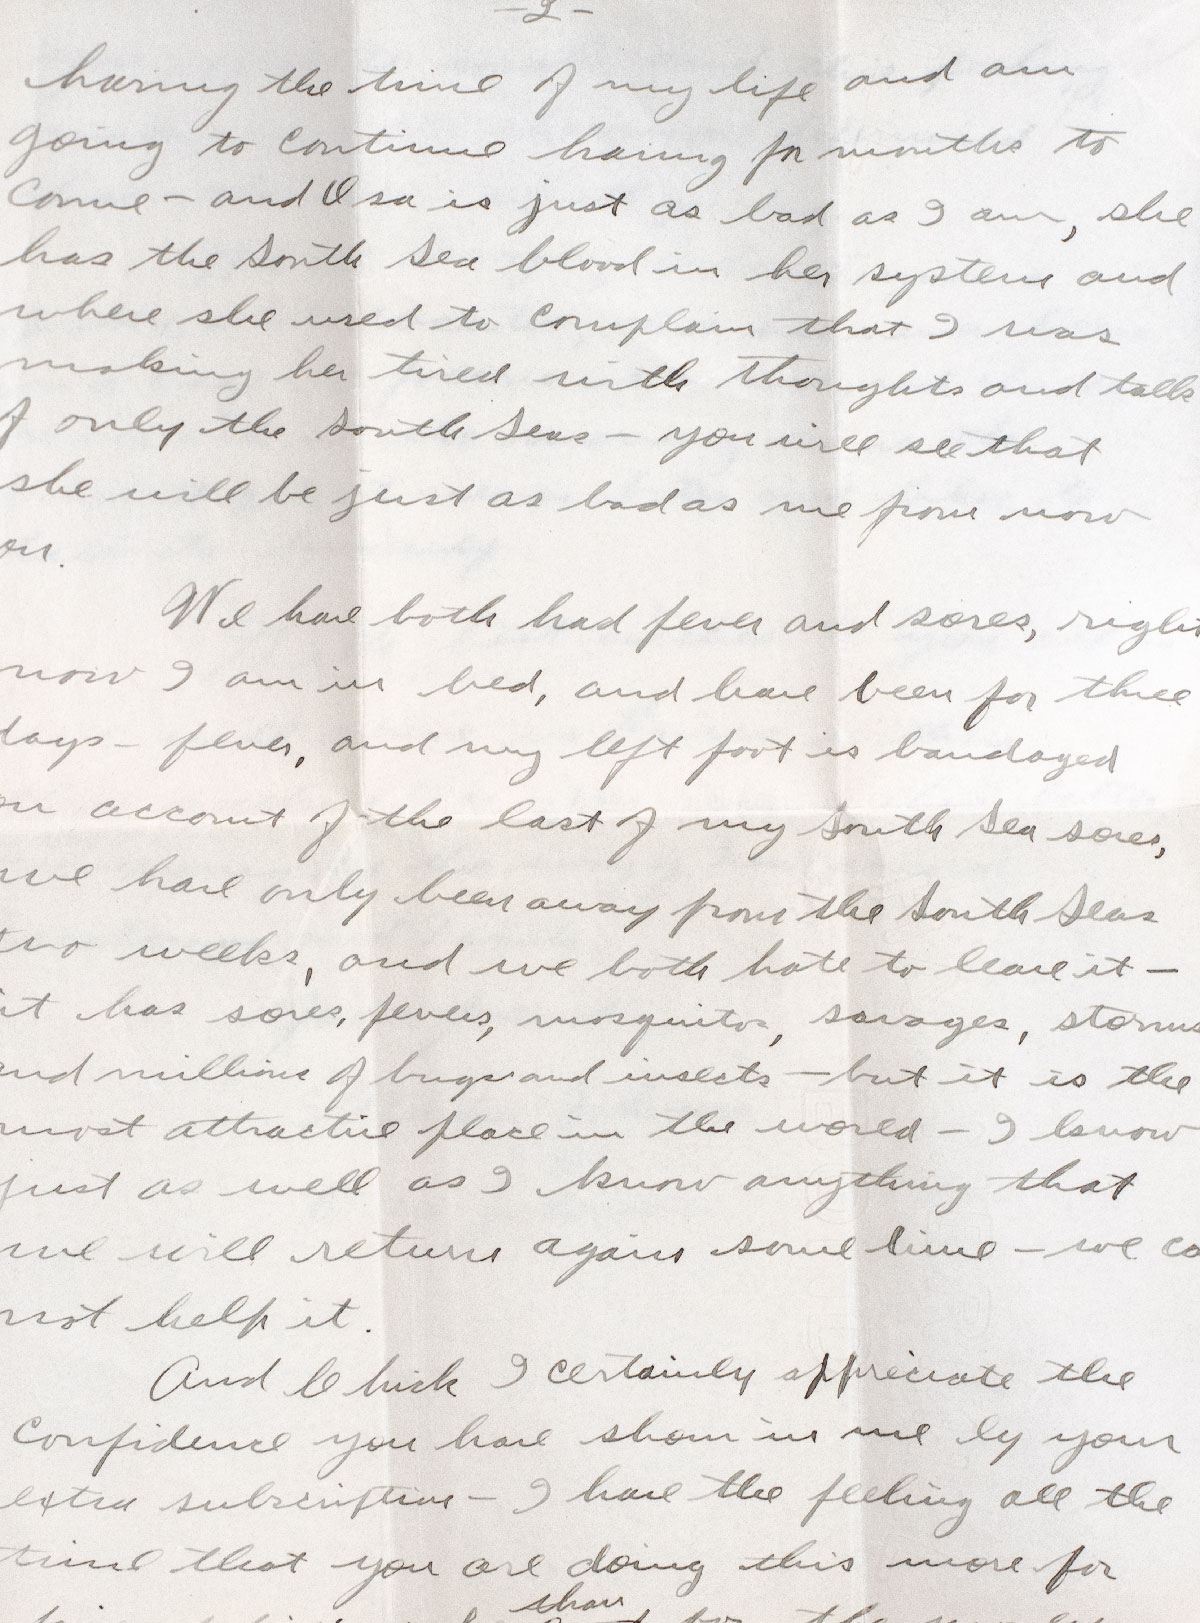 -2-
having the time of my life and am
going to continue having for months to
come - and Osa is just as bad as I am, she
has the South Sea blood in her system and
where she used to complain that I was
making her tired with thoughts and talk
of only the South Seas - you will see that
she will be just as bad as me from now
on.
We have both had fever and sores, right
now I am in bed, and have been for three
days - fever, and my left foot is bandaged
on account of the last of my South Sea sores,
we have only been away from the South Seas
two weeks, and we both hate to leave it -
it has sores, fevers, mosquitos, savages, storms
and millions of bugs and insects - but it is the
most attractive place in the world - I know
just as well as I know anything that
we will return again some time - we ca
not help it.
And Chick I certainly appreciate the
confidence you have shown in me by your
extra subscription - I have the feeling all the
time that you are doing this more for
than